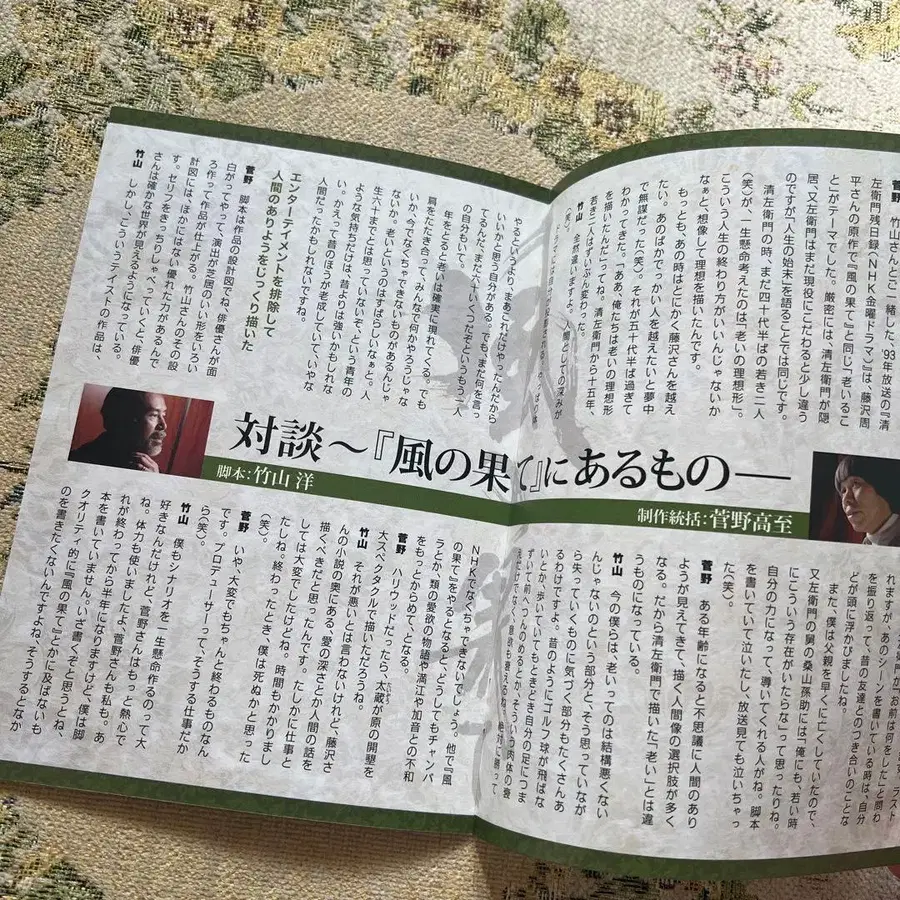 菅野 竹山さんとご一緒した、'93年放送の『清
左衛門残日録』(NHK金曜ドラマ)は、藤沢周
平さんの原作で『風の果て』と同じ「老いるこ
と」がテーマでした。厳密には、清左衛門が隠
居、又左衛門はまだ現役でこだわると少し違う
のですが「人生の始末」を語ることでは同じです。
清左衛門の時、まだ四十代半ばの若き二人
(笑)が、一生懸命考えたのは「老いの理想形」。
こういう人生の終わり方がいいんじゃないか
なぁと、想像して理想を描いたんです。
もっとも、あの時はとにかく藤沢さんを越え
たい。あのばかでっかい人を越えたいと夢中
で無謀だった(笑)。それが五十代半ば過ぎて
わかってきた。「ああ、俺たちは老いの理想形
を描いたんだ」ってね。清左衛門から十五年、
若き二人はずいぶん変わった。
竹山 全然違いますよ。人間としての深みが
(笑)。
やるというより、まあこれだけやったんだから
いいかと思う自分がある。でも、まだ何を言っ
てるんだ、まだ六十いくつだぞというもう一人
の自分もいる。
年をとると老いは確実に現れてくる。でも
肩をたたき合って、みんなで何かやろうじゃな
いか、今でなくちゃできないものがあるんじゃ
ないか。老いというのはすばらしいなぁと。人
生六十までとは思っていないぞ、という青年の
ような気持ちだけは、昔よりは強いかもしれな
い。かえって昔のほうが老成していていやな
人間だったかもしれないですね。
エンターテイメントを排除して
人間のありようをじっくり描いた
菅野 脚本は作品の設計図でね、俳優さんが面
白がってやって、演出が芝居のいい形をいろい
ろ作って作品が仕上がる。竹山さんのその設
計図には、ほかにはない優れた力があるんで
す。セリフをきっちりしゃべっていくと、俳優
さんは確かな世界が見えるようになっている。
竹山 しかし、こういうテイストの作品は、
対談〜『風の果て』にあるもの―
脚本:竹山 洋
制作統括:菅野高至
を振り返って、昔の友達とのづき合いのことな
どが頭に浮かびましたね。
また、僕は父親を早くに亡くしていたので、
又左衛門の舅の桑山孫助には「俺にも、若い時
にこういう存在がいたらな」って思ったりね。
自分の力になって、導いてくれる人がね。脚本
を書いていて泣いたし、放送見ても泣いちゃっ
た(笑)。
菅野 ある年齢になると不思議に人間のあり
ようが見えてきて、描く人間像の選択肢が多く
なる。だから清左衛門で描いた「老い」とは違
うものになっている。
竹山 今の僕らは、老いってのは結構悪くない
んじゃないのという部分と、そう思っていなが
ら失っていくものに気づく部分もたくさんあ
るわけですよ。昔のようにゴルフ球が飛ばな
いとか、歩いていてもときどき自分の足につま
ずいて前へつんのめるとか、そういう肉体の衰
NHKでなくちゃできないでしょう。他で『風
の果て』をやるとなると、どうしてもチャンバ
ラとか、類の愛欲の物語や満江や加音との不和
をもっとからめて、となる。
菅野 ハリウッドだったら、太蔵が原の開墾を
大スペクタクルで描いただろうね。
竹山 それが悪いとは言わないけれど、藤沢さ
んの小説の奥にある、愛の深さとか人間の話を
描くべきだと思ったんです。たしかに仕事と
しては大変でしたけどね。時間もかかりまし
たしね。終わったとき、僕は死ぬかと思った
(笑)。
菅野 いや、大変でもちゃんと終わるものなん
です。プロデューサーって、そうする仕事だか
ら(笑)。
竹山 僕もシナリオを一生懸命作るのって大
好きなんだけれど、菅野さんはもっと熱心で
ね。体力も使いましたよ、菅野さんも私も。あ
れが終わってから半年になりますけど、僕は脚
本を書いていません。いざ書くぞと思うとね、
クオリティ的に『風の果て』とかに及ばないも
のを書きたくないんですよね、そうするとなか